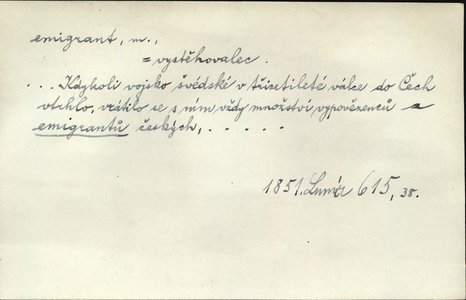 emigrant, m.,
= vystěhovalec.
... Kdykoli vojsko švédské v třicetileté válce do Čech
vtrhlo, vrátilo se s ním vždy množství vypovězenců a
emigrantů českých, . . . . .
1851. Lumír 615, 38.